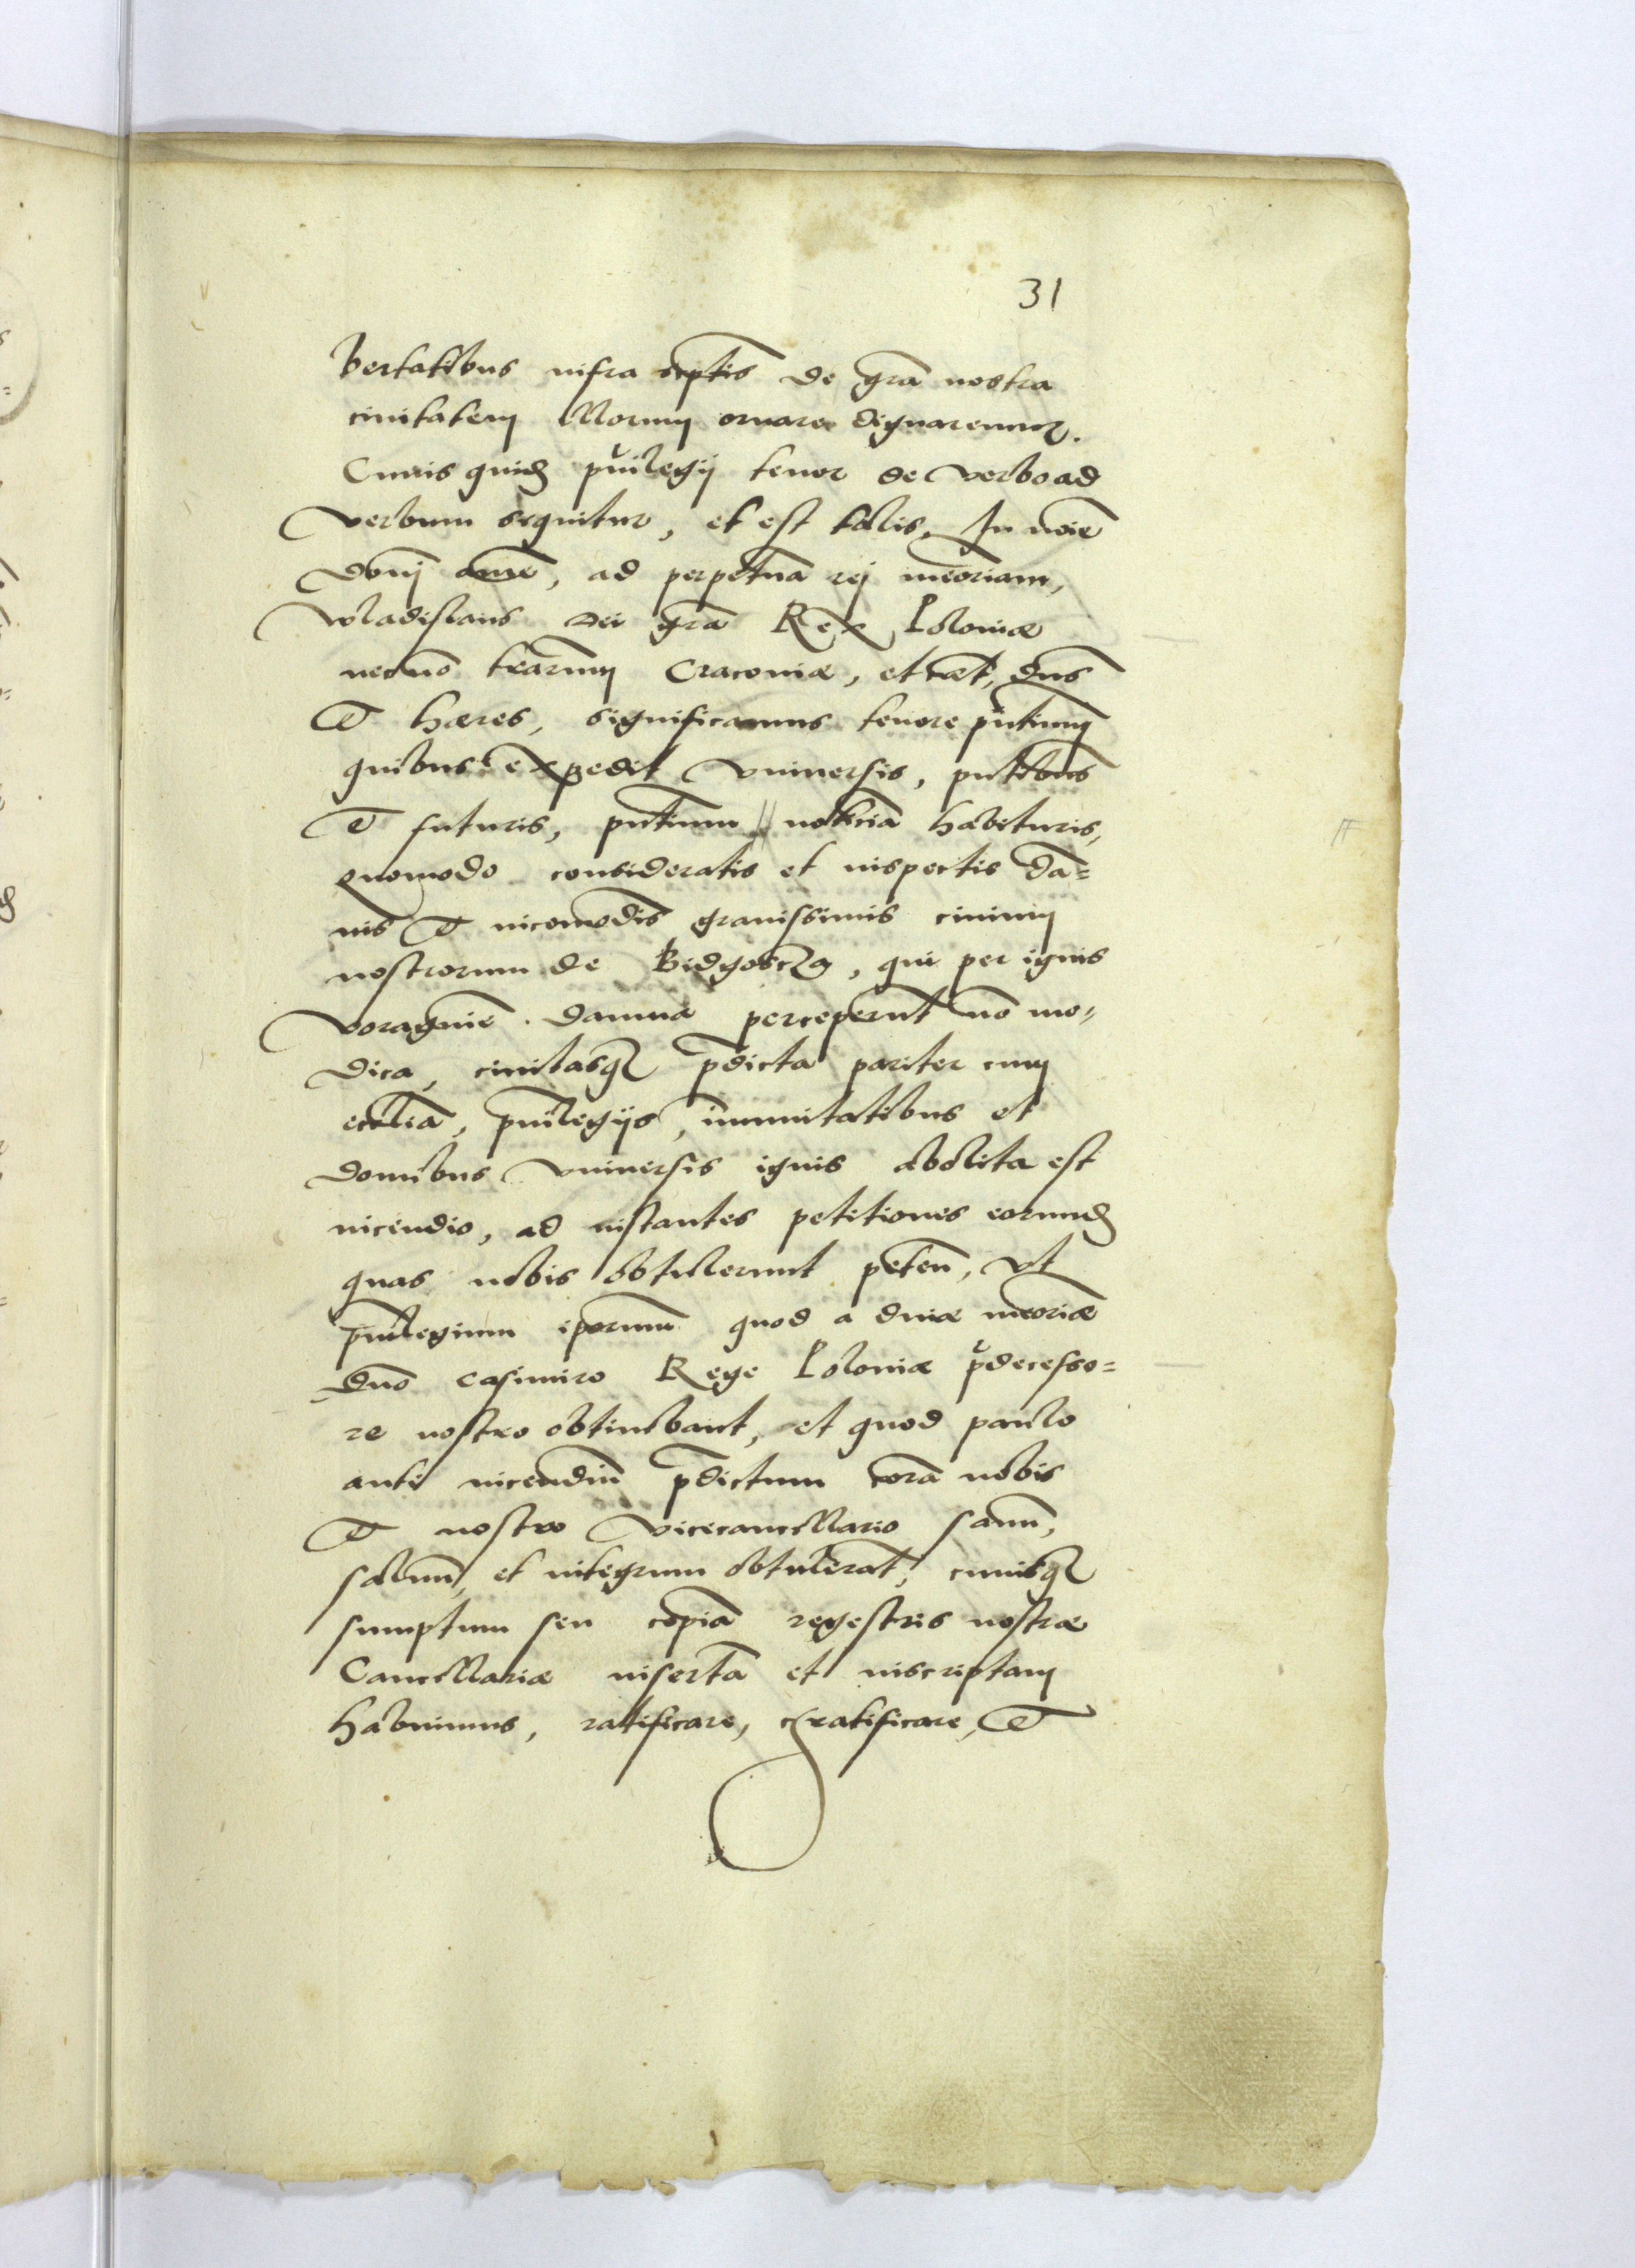 31
bertatibus infra scptis de grã nostra
ciuitatem illorum ornare dignaremur.
Cuius quidẽ priuilegij tenor de verbo ad
verbum sequitur, et est talis. In noĩe
Domj amẽ, ad perpetuã rej meoriam,
Wladislaus Dei grã Rex Poloniæ
necnõ trarum Craconiæ, et cæt, dns
et hæres, significamus tenore pñtium
quibus expedit vniuersis, pñtibus
et futuris, pñtium noticiã habituris,
quomodo consideratis et inspectis da=
nis et incomodis grauissimis ciuium
nostrorum de Bidgoscza, qui per ignis
voraginẽ. damna perceperũt nõ mo=
dica, ciuitasq3 p̃dicta pariter cum
eccliã, priuilegijs, imunitatibus et
domibus vniuersis ignis abolita est
incendio, ad instantes petitiones eorumdẽ
quas nobis obtulerunt peten̄, vt
priuilegium ip̃orum quod a diuæ meoriæ
Dno Casimiro Rege Poloniæ p̃decesso=
re nostro obtinebant, et quod paulo
ante incendiũ p̃dictum corã nobis
et nostro vicecancellario sanũ,
saluũ, et integrum obtulerãt, cuiusq3
sumptum seu copiã regestris nostræ
Cancellariæ insertã et inscriptam
habuimus, ratificare, gratificare, et